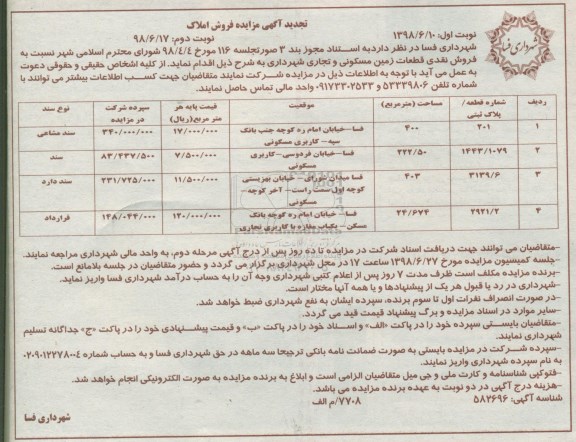 تجدید آگهی مزایده فروش املاک
نوبت اول: ۱۳۹۸/۶/۱۰ نوبت دوم: ۹۸/۶/۱۷
شهرداری فسا
شهرداری فسا در نظر دارد به استناد مجوز بند ۳ صورتجلسه ۱۱۶ مورخ ۹۸/۴/۴ شورای محترم اسلامی شهر نسبت به
فروش نقدی قطعات زمین مسکونی و تجاری شهرداری به شرح ذیل اقدام نماید. از کلیه اشخاص حقیقی و حقوقی دعوت
به عمل می آید با توجه به اطلاعات ذیل در مزایده شرکت نمایند متقاضیان جهت کسب اطلاعات بیشتر می توانند با
شماره تلفن ۵۳۳۳۹۸۰۶ و ۰۹۱۷۳۳۰۲۵۳۳ واحد مالی تماس حاصل نمایند.
ردیف شماره قطعه/ پلاک ثبتی مساحت (مترمربع) موقعیت قیمت پایه هر متر مربع(ریال) سپرده شرکت در مزایده نوع سند
۱ ۲۰۱ ۴۰۰ فسا–خیابان امام ره کوچه جنب بانک سپه– کاربری مسکونی ۱۷/۰۰۰/۰۰۰ ۳۴۰/۰۰۰/۰۰۰ سند مشاعی
۲ ۱۴۴۳/۱۰۷۹ ۲۲۲/۵۰ فسا–خیابان فردوسی–کاربری مسکونی ۷/۵۰۰/۰۰۰ ۸۳/۴۳۷/۵۰۰ سند
۳ ۳۱۳۹/۶ ۴۰۳ فسا میدان شورای– خیابان بهزیستی کوچه اول سمت راست– آخر کوچه– مسکونی ۱۱/۵۰۰/۰۰۰ ۲۳۱/۷۲۵/۰۰۰ سند دارد
۴ ۲۹۲۱/۲ ۲۴/۶۷۴ فسا– خیابان امام ره کوچه بانک مسکن– یکباب مغازه با کاربری تجاری ۱۲۰/۰۰۰/۰۰۰ ۱۴۸/۰۴۴/۰۰۰ قرارداد
–متقاضیان می توانند جهت دریافت اسناد شرکت در مزایده تا ده روز پس از درج آگهی مرحله دوم، به واحد مالی شهرداری مراجعه نمایند.
–جلسه کمیسیون مزایده مورخ ۱۳۹۸/۶/۲۷ ساعت ۱۷ در محل شهرداری برگزار می گردد و حضور متقاضیان در جلسه بلامانع است.
–برنده مزایده مکلف است ظرف مدت ۷ روز پس از اعلام کتبی شهرداری وجه آن را به حساب درآمد شهرداری فسا واریز نماید.
–شهرداری در رد یا قبول هر یک از پیشنهادها و یا همه آنها مختار است.
–در صورت انصراف نفرات اول تا سوم برنده، سپرده ایشان به نفع شهرداری ضبط خواهد شد.
–سایر موارد در اسناد مزایده و برگ پیشنهاد قیمت قید می گردد.
–متقاضیان بایستی سپرده خود را در پاکت «الف» و اسناد خود را در پاکت «ب» و قیمت پیشنهادی خود را در پاکت «ج» جداگانه تسلیم
شهرداری نمایند.
–سپرده شرکت در مزایده بایستی به صورت ضمانت نامه بانکی ترجیحا سه ماهه در حق شهرداری فسا و به حساب شماره ۰۲۰۹۰۱۲۲۷۸۰۰۴
به نام سپرده شهرداری واریز نمایند.
–فتوکپی شناسنامه و کارت ملی و جی میل متقاضیان الزامی است و ابلاغ به برنده مزایده به صورت الکترونیکی انجام خواهد شد.
–هزینه درج آگهی در دو نوبت به عهده برنده مزایده می باشد.
شناسه آگهی: ۵۸۲۶۹۶ ۷۷۰۸/م الف
شهرداری فسا